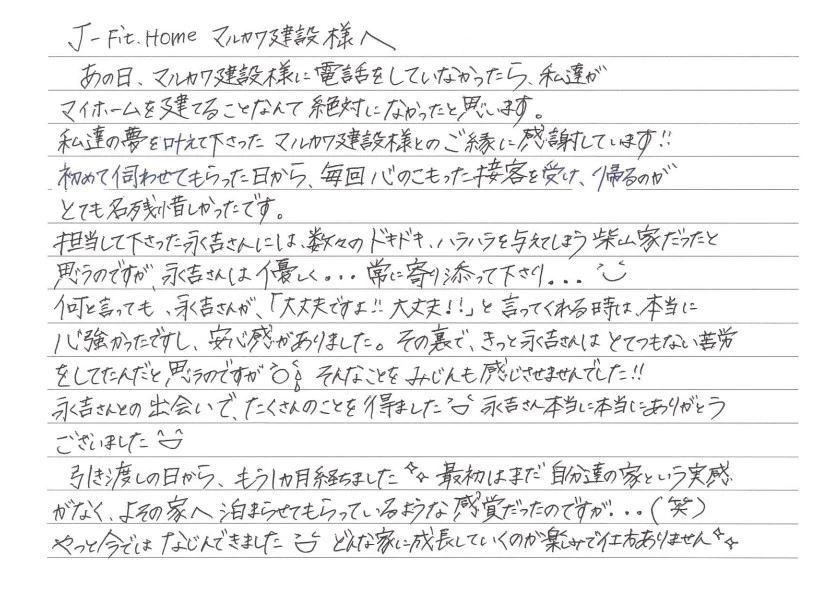 J-Fit.Home マルカワ建設様へ
あの日、マルカワ建設様に電話をしていなかったら、私達が
マイホームを建てることなんて絶対になかったと思います。
私達の夢を叶えて下さった マルカワ建設様とのご縁に感謝しています!!
初めて伺わせてもらった日から、毎回心のこもった接客を受け、帰るのが
とても名残惜しかったです。
担当して下さった永吉さんには、数々のドキドキ、ハラハラを与えてしまう柴山家だったと
思うのですが、永吉さんは優しく...常に寄り添って下さり...
何と言っても、永吉さんが、「大丈夫ですよ!!大丈夫!!」と言ってくれる時は、本当に
心強かったですし、安心感がありました。その裏で、きっと永吉さんはとてつもない苦労
をしてたんだと思うのですが そんなことをみじんも感じさせませんでした!!
永吉さんとの出会いで、たくさんのことを得ました 永吉さん本当に本当にありがとう
ございました
引き渡しの日から、もう1カ月経ちました 最初はまだ自分達の家という実感
がなく、よその家へ泊まらせてもらっているような感覚だったのですが...(笑)
やっと今ではなじんできました どんな家に成長していくのか楽しみで仕方ありません